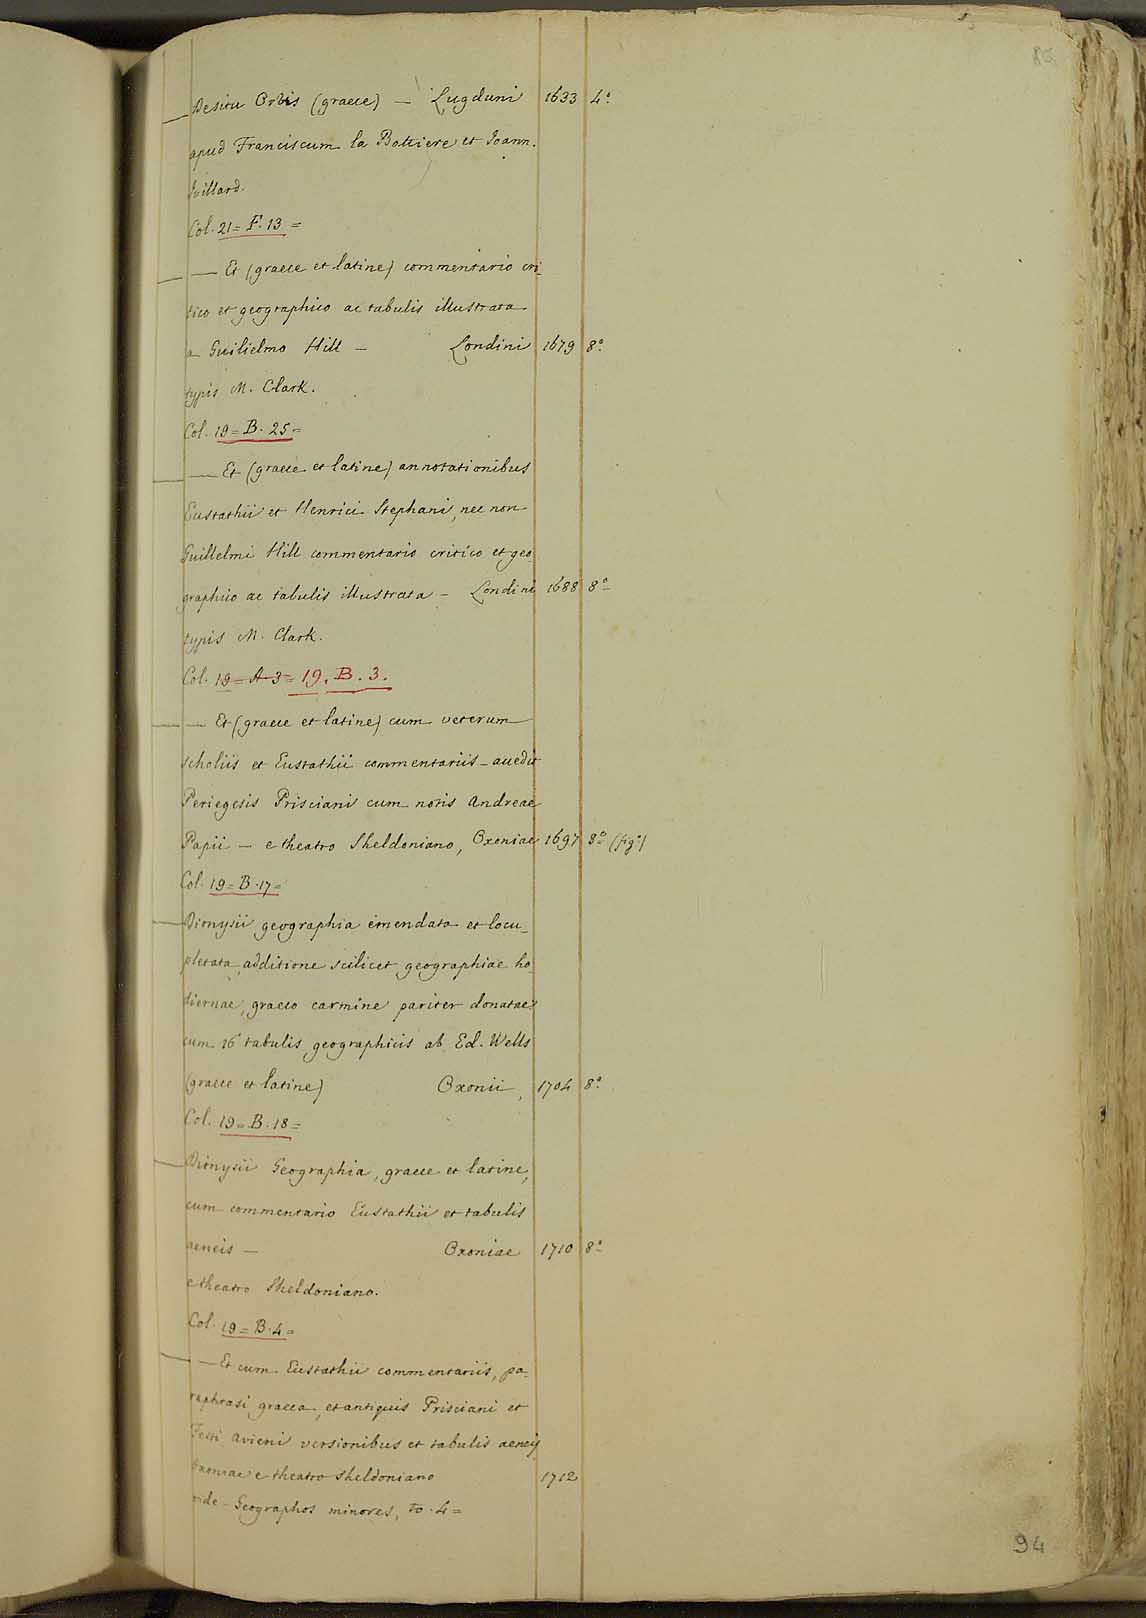 86
De situ Orbis (graece) — Lugduni 1633 4.º
apud Franciscum la Bottiere et Joann.
Juillard.
Col. 21 = F. 13 =
— Et (graece et latine) commentario cri-
tico et geographico ac tabulis illustrata
a Guilielmo Hill — Londini 1679 8.º
typis M. Clark.
Col. 19 = B. 25 =
— Et (graece et latine) annotationibus
Eustathii et Henrici Stephani, nec non
Guillelmi Hill commentario critico et geo-
graphico ac tabulis illustrata — Londini 1688 8.º
typis M. Clark.
Col. 19 = A. 3 = 19. B. 3.
— Et (graece et latine) cum veterum
scholiis et Eustathii commentariis — accedit
Periegesis Prisciani cum notis Andreae
Papii — e theatro Sheldoniano, Oxoniae 1697 8.º (fig.)
Col. 19 = B. 17 =
Dionysii geographia emendata et locu-
pletata, additione scilicet geographiae ho-
diernae, graeco carmine pariter donatae:
cum 16 tabulis geographicis ab Ed. Wells
(graece et latine) Oxonii, 1704 8.º
Col. 19 = B. 18 =
Dionysii Geographia, graece et latine,
cum commentario Eustathii et tabulis
aeneis — Oxoniae 1710 8.º
e theatro Sheldoniano.
Col. 19 = B. 4 =
— Et cum Eustathii commentariis, pa-
raphrasi graeca, et antiquis Prisciani et
Festi Avieni versionibus et tabulis aeneis
Oxoniae e theatro Sheldoniano 1712
vide — Geographos minores, to. 4 =
94